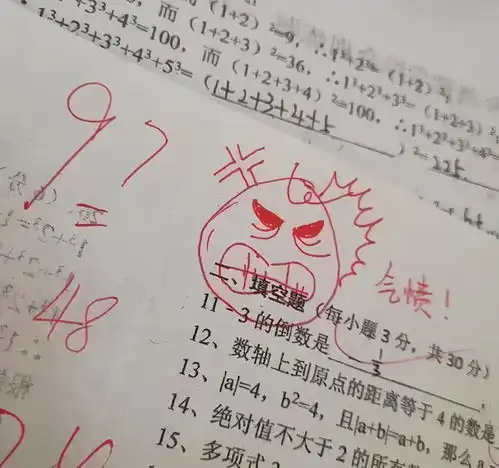 而 (1+2)²=9, ∴1³+2³=(1+2)²;
+3³+4³=100, 而 (1+2+3)²=36, ∴1³+2³+3³=(1+2+3)²
1³+2³+3³+4³+5³=(1+2+3+4+5)²=225
而 (1+2+3+4)²=100, ∴1³+2³+3³+4³
97
48
气愤!
二、填空题 (每小题3分, 共30分)
11 -3的倒数是 -1/3
12、数轴上到原点的距离等于4的数是
13、|a|=4, b²=4, 且|a+b|=a+b, 那么a
14、绝对值不大于2的所有
15、多项式